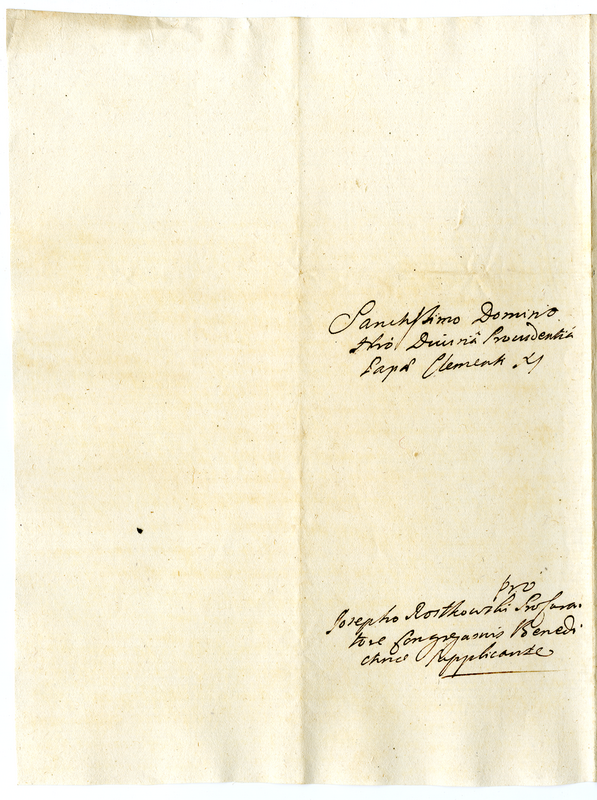 Sanctissimo Domino
Nrō Divinâ Providentiâ
Papæ Clementi XI
pro
Josepho Rostkowski Procura-
tore Congregaōnis Benedi
ctinæ Supplicante